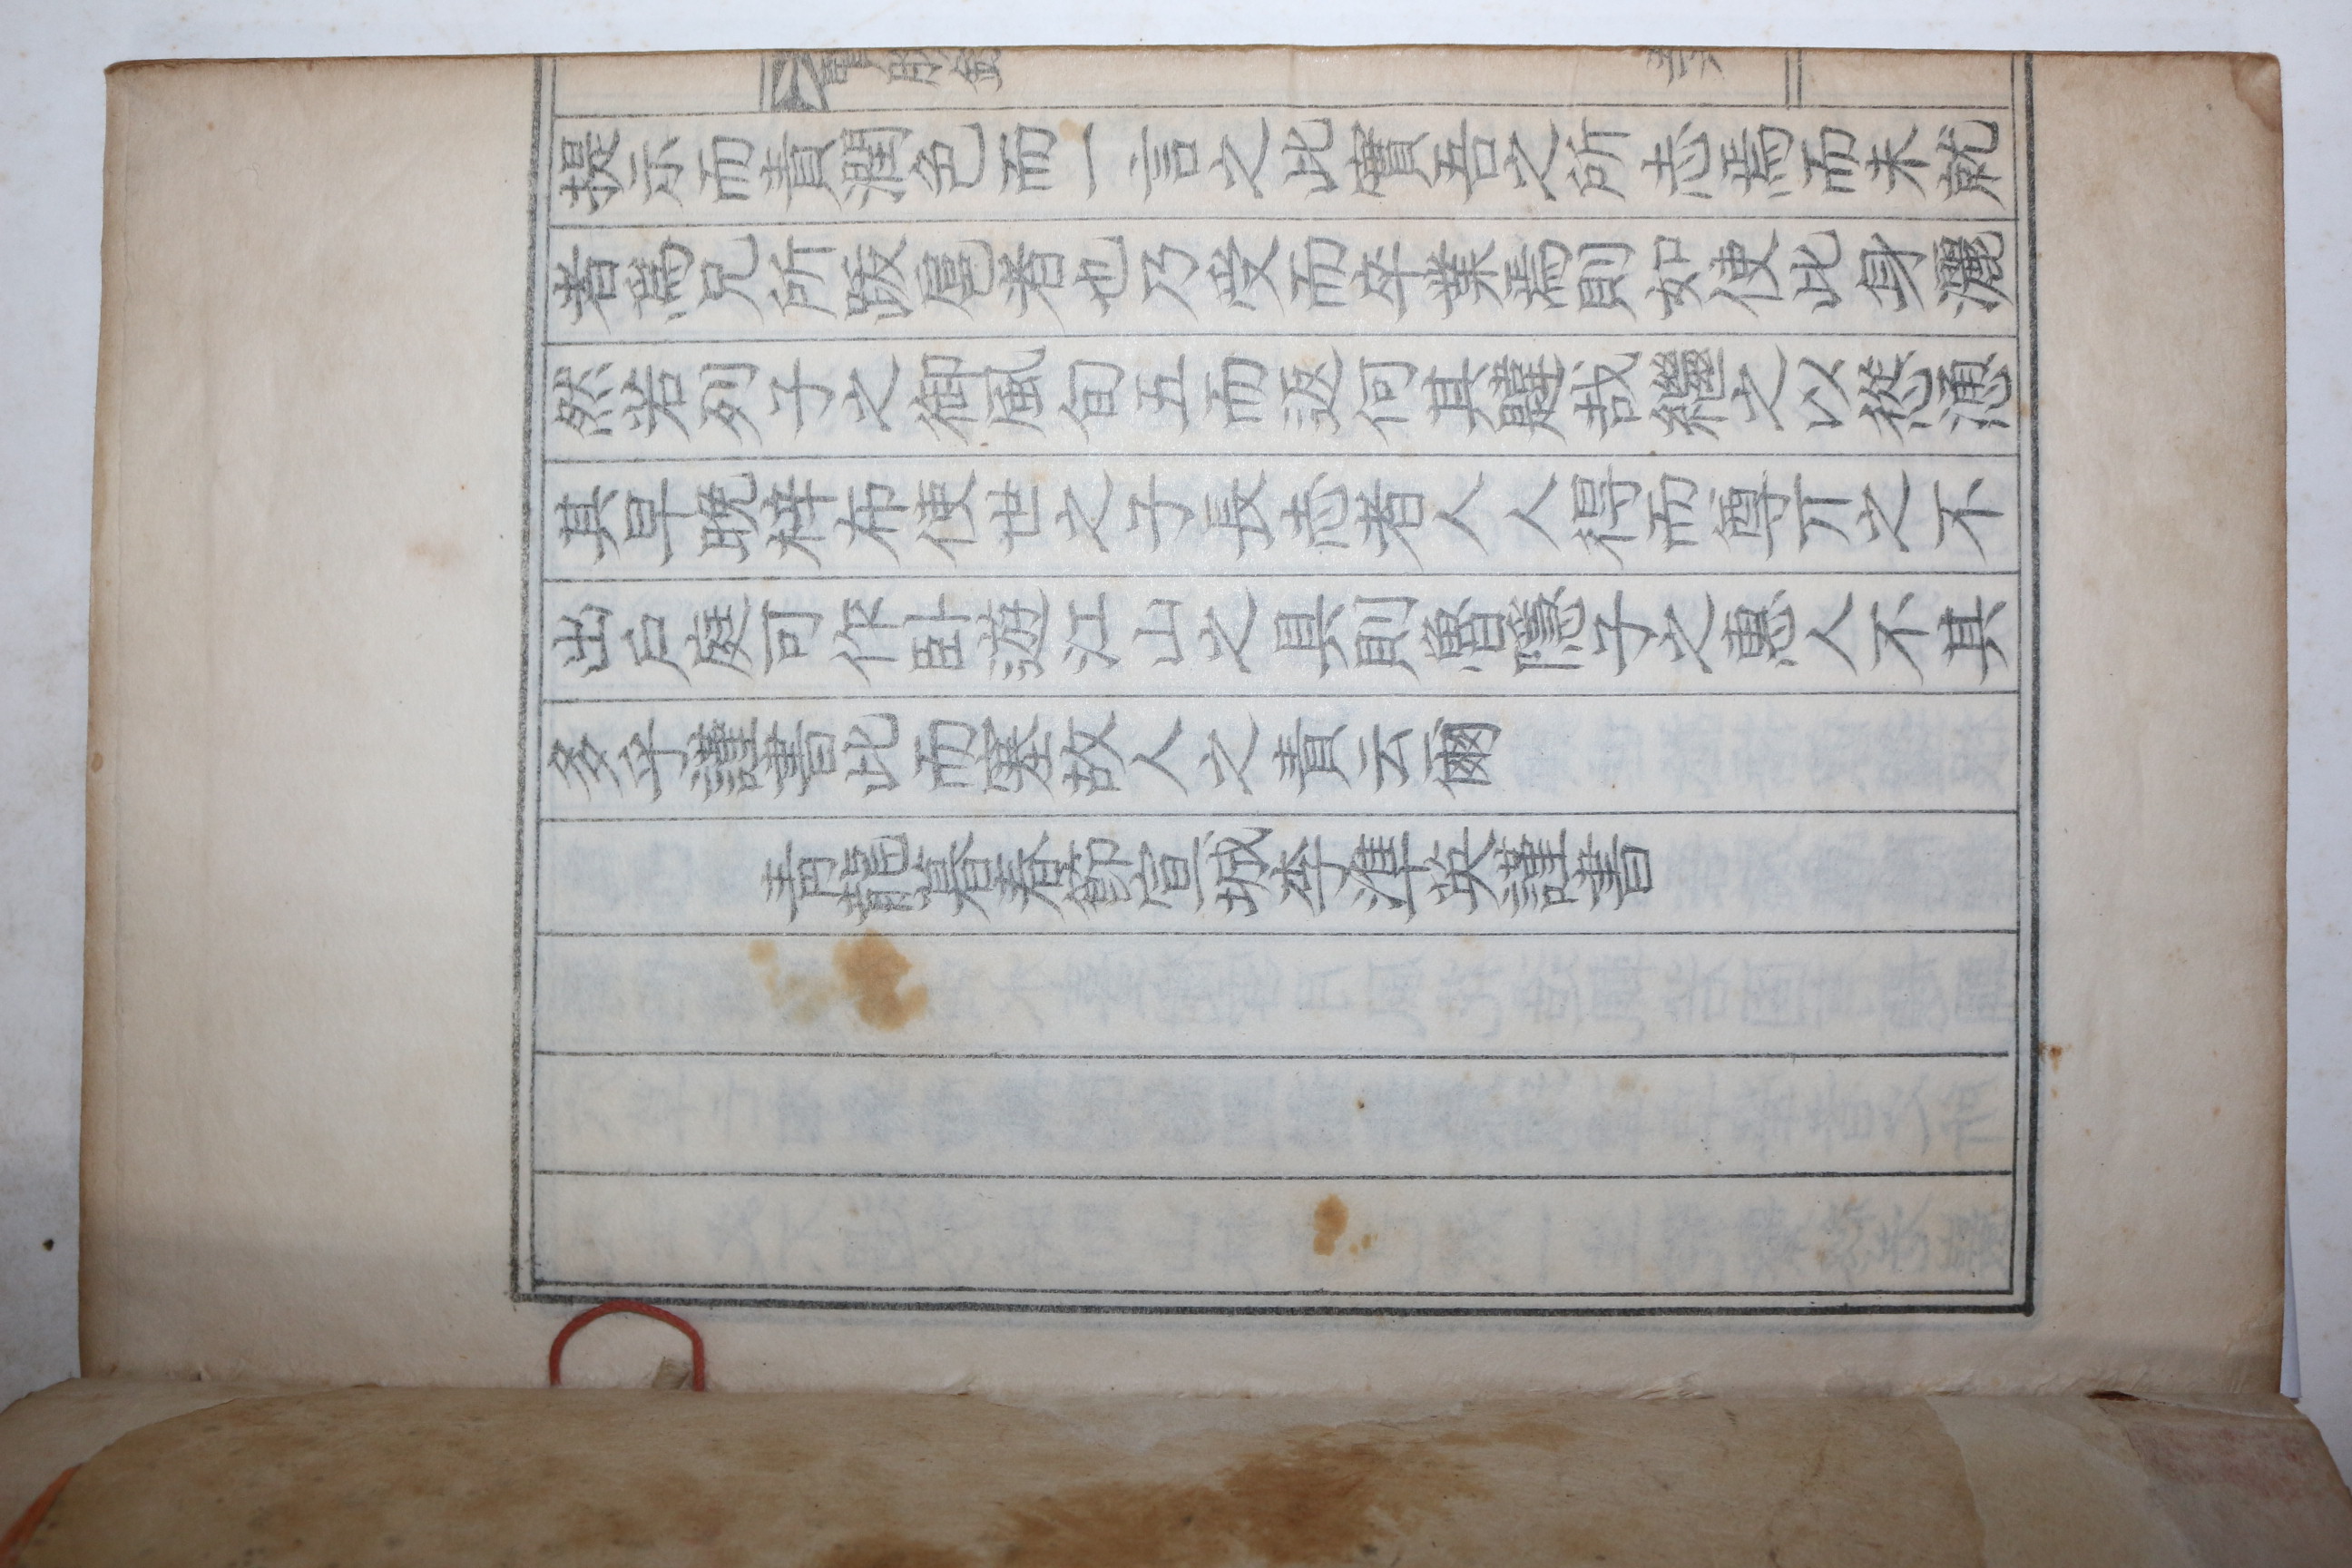 提示而責潤色而一言之此實吾之所志焉而未就
者爲兄所跋扈者也乃受而卒業焉則如使此身灑
然若列子之御風旬五而返何其韙哉繼之以慫慂
其早晩梓布使世之子長志者人人得而學之不
出戶庭可作臥遊江山之具則魯隱子之惠人不其
多乎謹書此而塞故人之責云爾
靑龍暮春節宣城李準榮謹書